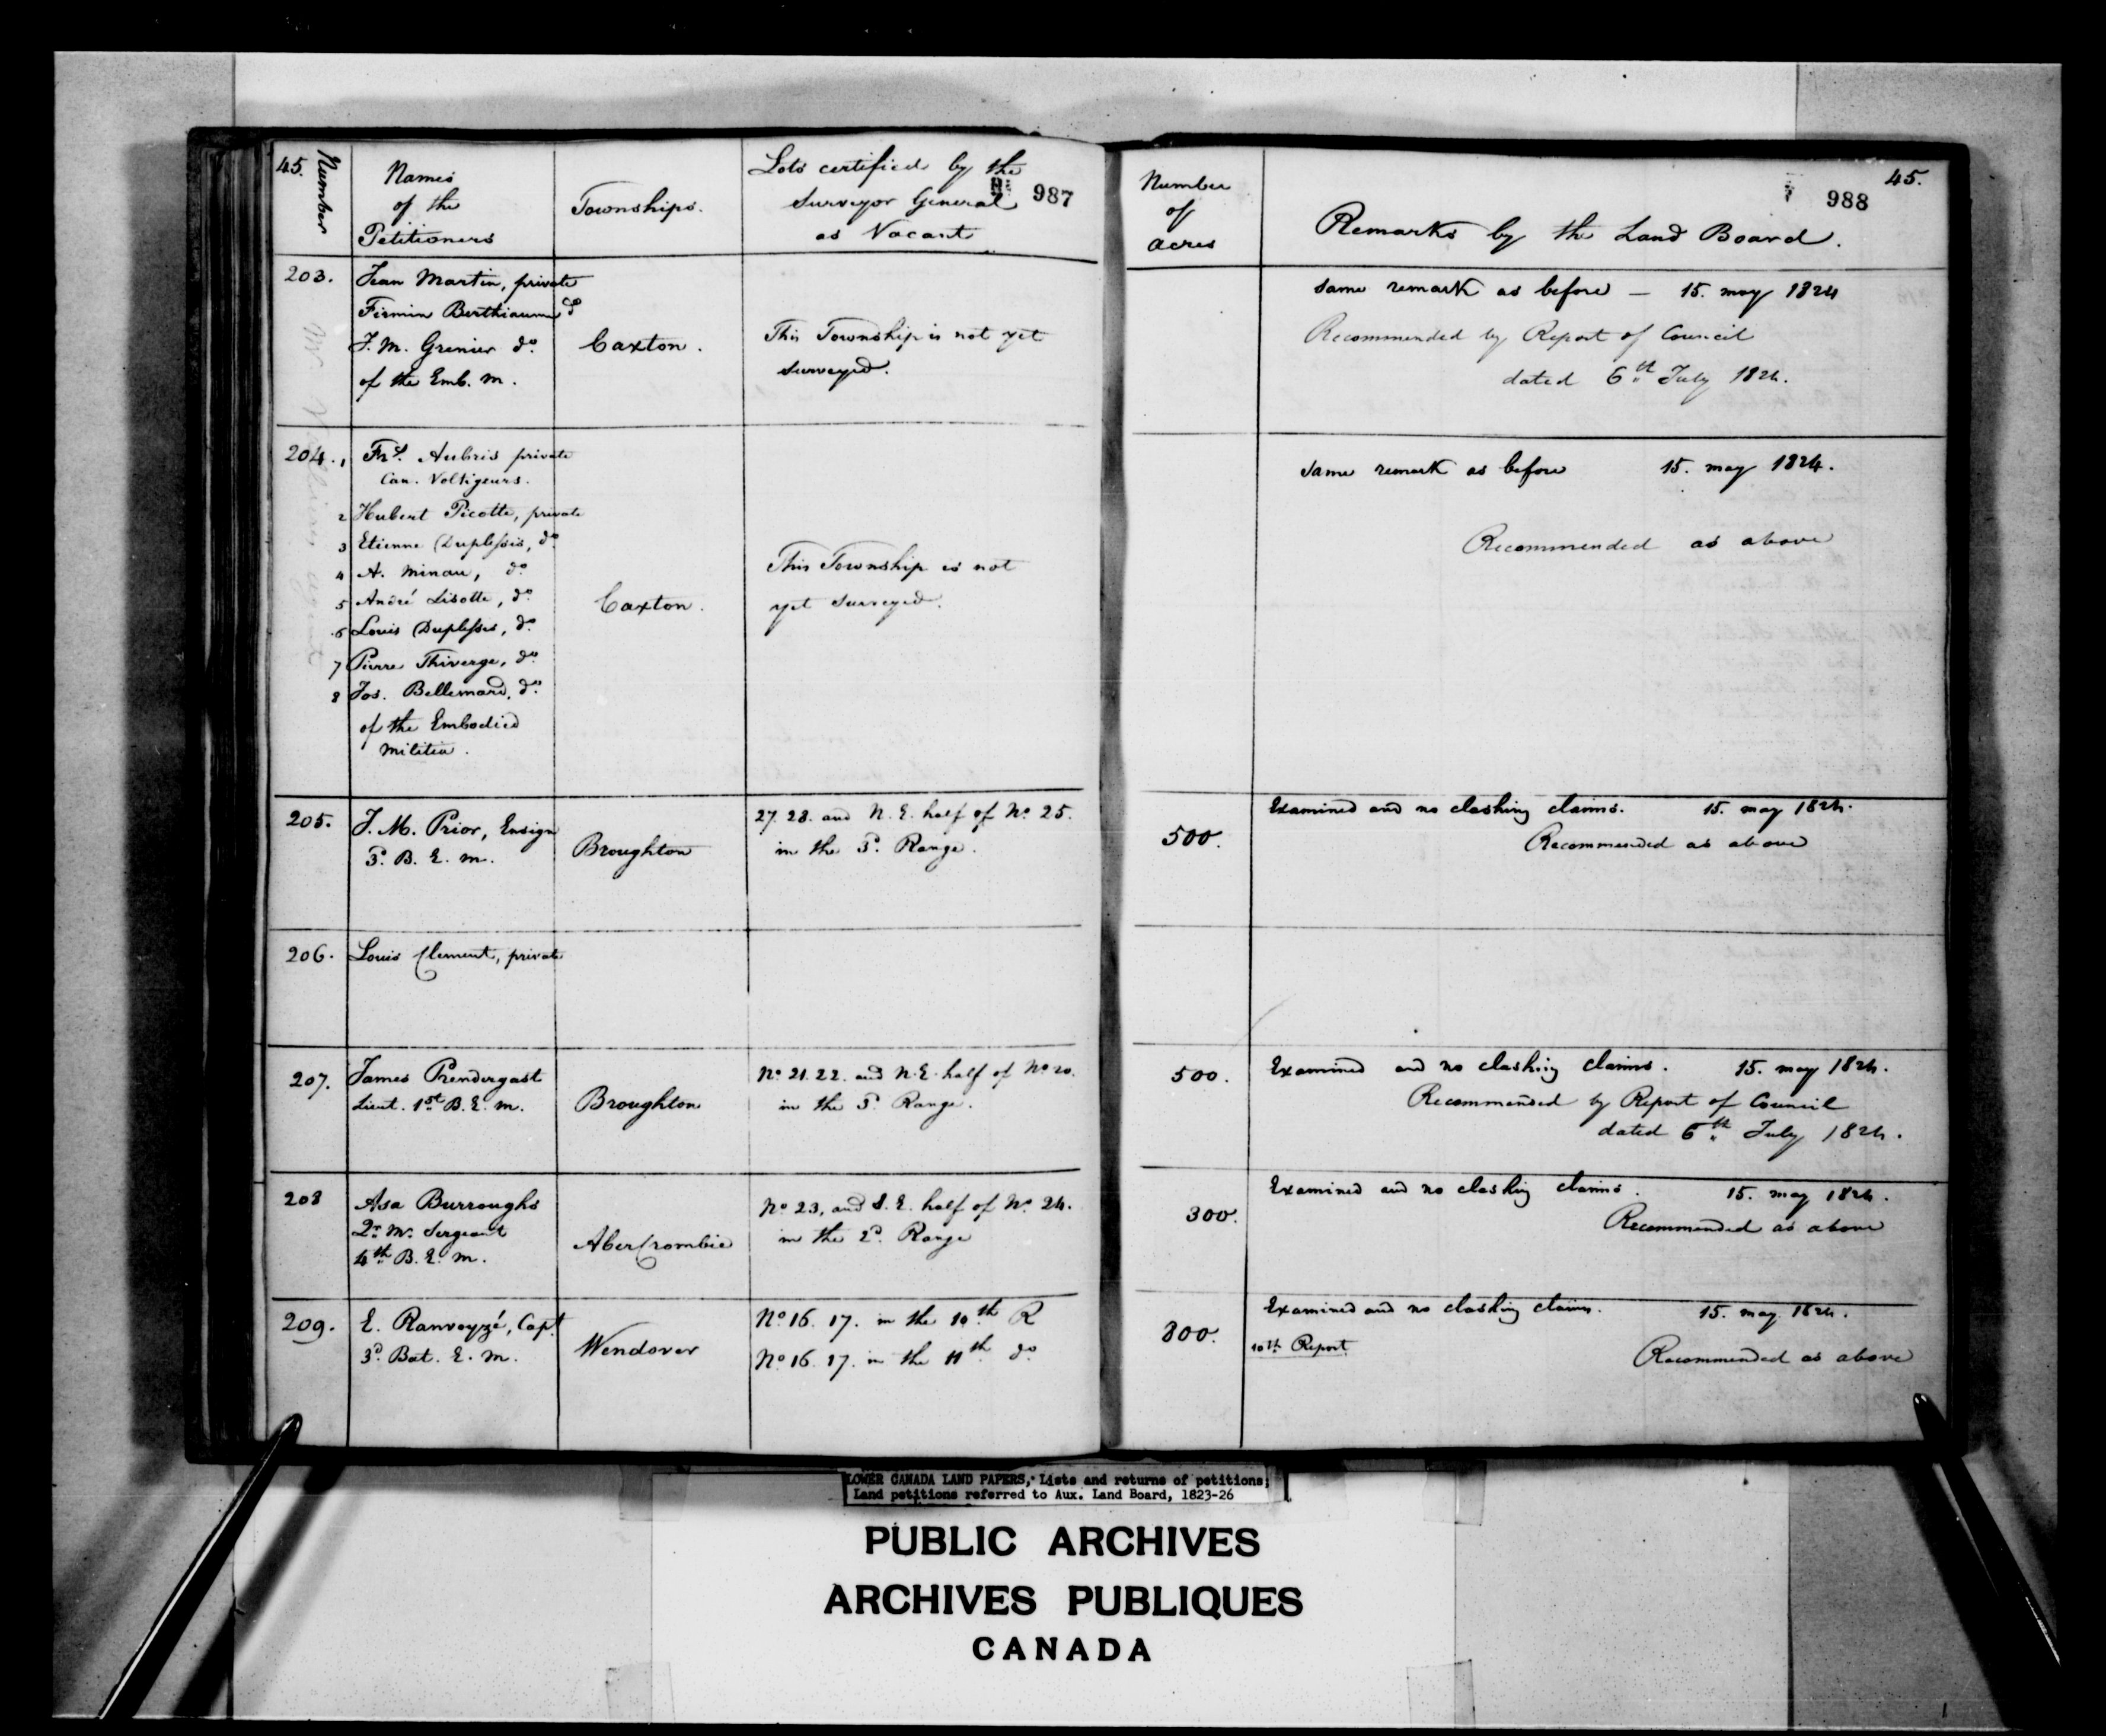 45.
Number
Names
of the
Petitioners
Townships.
Lots certified by the
Surveyor General
as Vacant
987
203.
Jean Martin, private
Firmin Berthiaume do
J. M. Grenier do.
of the Emb. m.
Caxton.
This Township is not yet
surveyed.
204.
1 Frs. Aubris private
Can. Voltigeurs.
2 Hubert Picotte, private
3 Etienne Duplessis, do.
4 A. Minau, do.
5 André Lisotte, do.
6 Louis Duplessis, do.
7 Pierre Thiverge, do.
8 Jos. Bellemard, do.
of the Embodied
Militia.
Caxton.
This Township is not
yet surveyed.
205.
J. M. Prior, Ensign
3d. B. E. m.
Broughton
27. 28. and N. E. half of No. 25.
in the 3d. Range.
206.
Louis Clement, private
207.
James Prendergast
Lieut. 1st B. E. m.
Broughton
No 21. 22. and N. E. half of No 20.
in the 3d. Range.
208
Asa Burroughs
Qr. Mr. Sergeant
4th B. E. m.
Abercrombie
No 23, and S. E. half of No. 24.
in the 2d. Range
209.
E. Ranvoyzé, Capt
3d Bat. E. m.
Wendover
No 16. 17. in the 10th R
No 16. 17. in the 11th do
Number
of
acres
988
45.
Remarks by the Land Board.
same remark as before — 15. may 1824
Recommended by Report of Council
dated 6th July 1824.
same remark as before 15. may 1824.
Recommended as above
500.
Examined and no clashing claims. 15. may 1824.
Recommended as above
500.
Examined and no clashing claims. 15. may 1824.
Recommended by Report of Council
dated 6th July 1824.
300.
Examined and no clashing claims. 15. may 1824.
Recommended as above
800.
Examined and no clashing claims. 15. may 1824.
10th Report
Recommended as above
LOWER CANADA LAND PAPERS, Lists and returns of petitions;
Land petitions referred to Aux. Land Board, 1823-26
PUBLIC ARCHIVES
ARCHIVES PUBLIQUES
CANADA